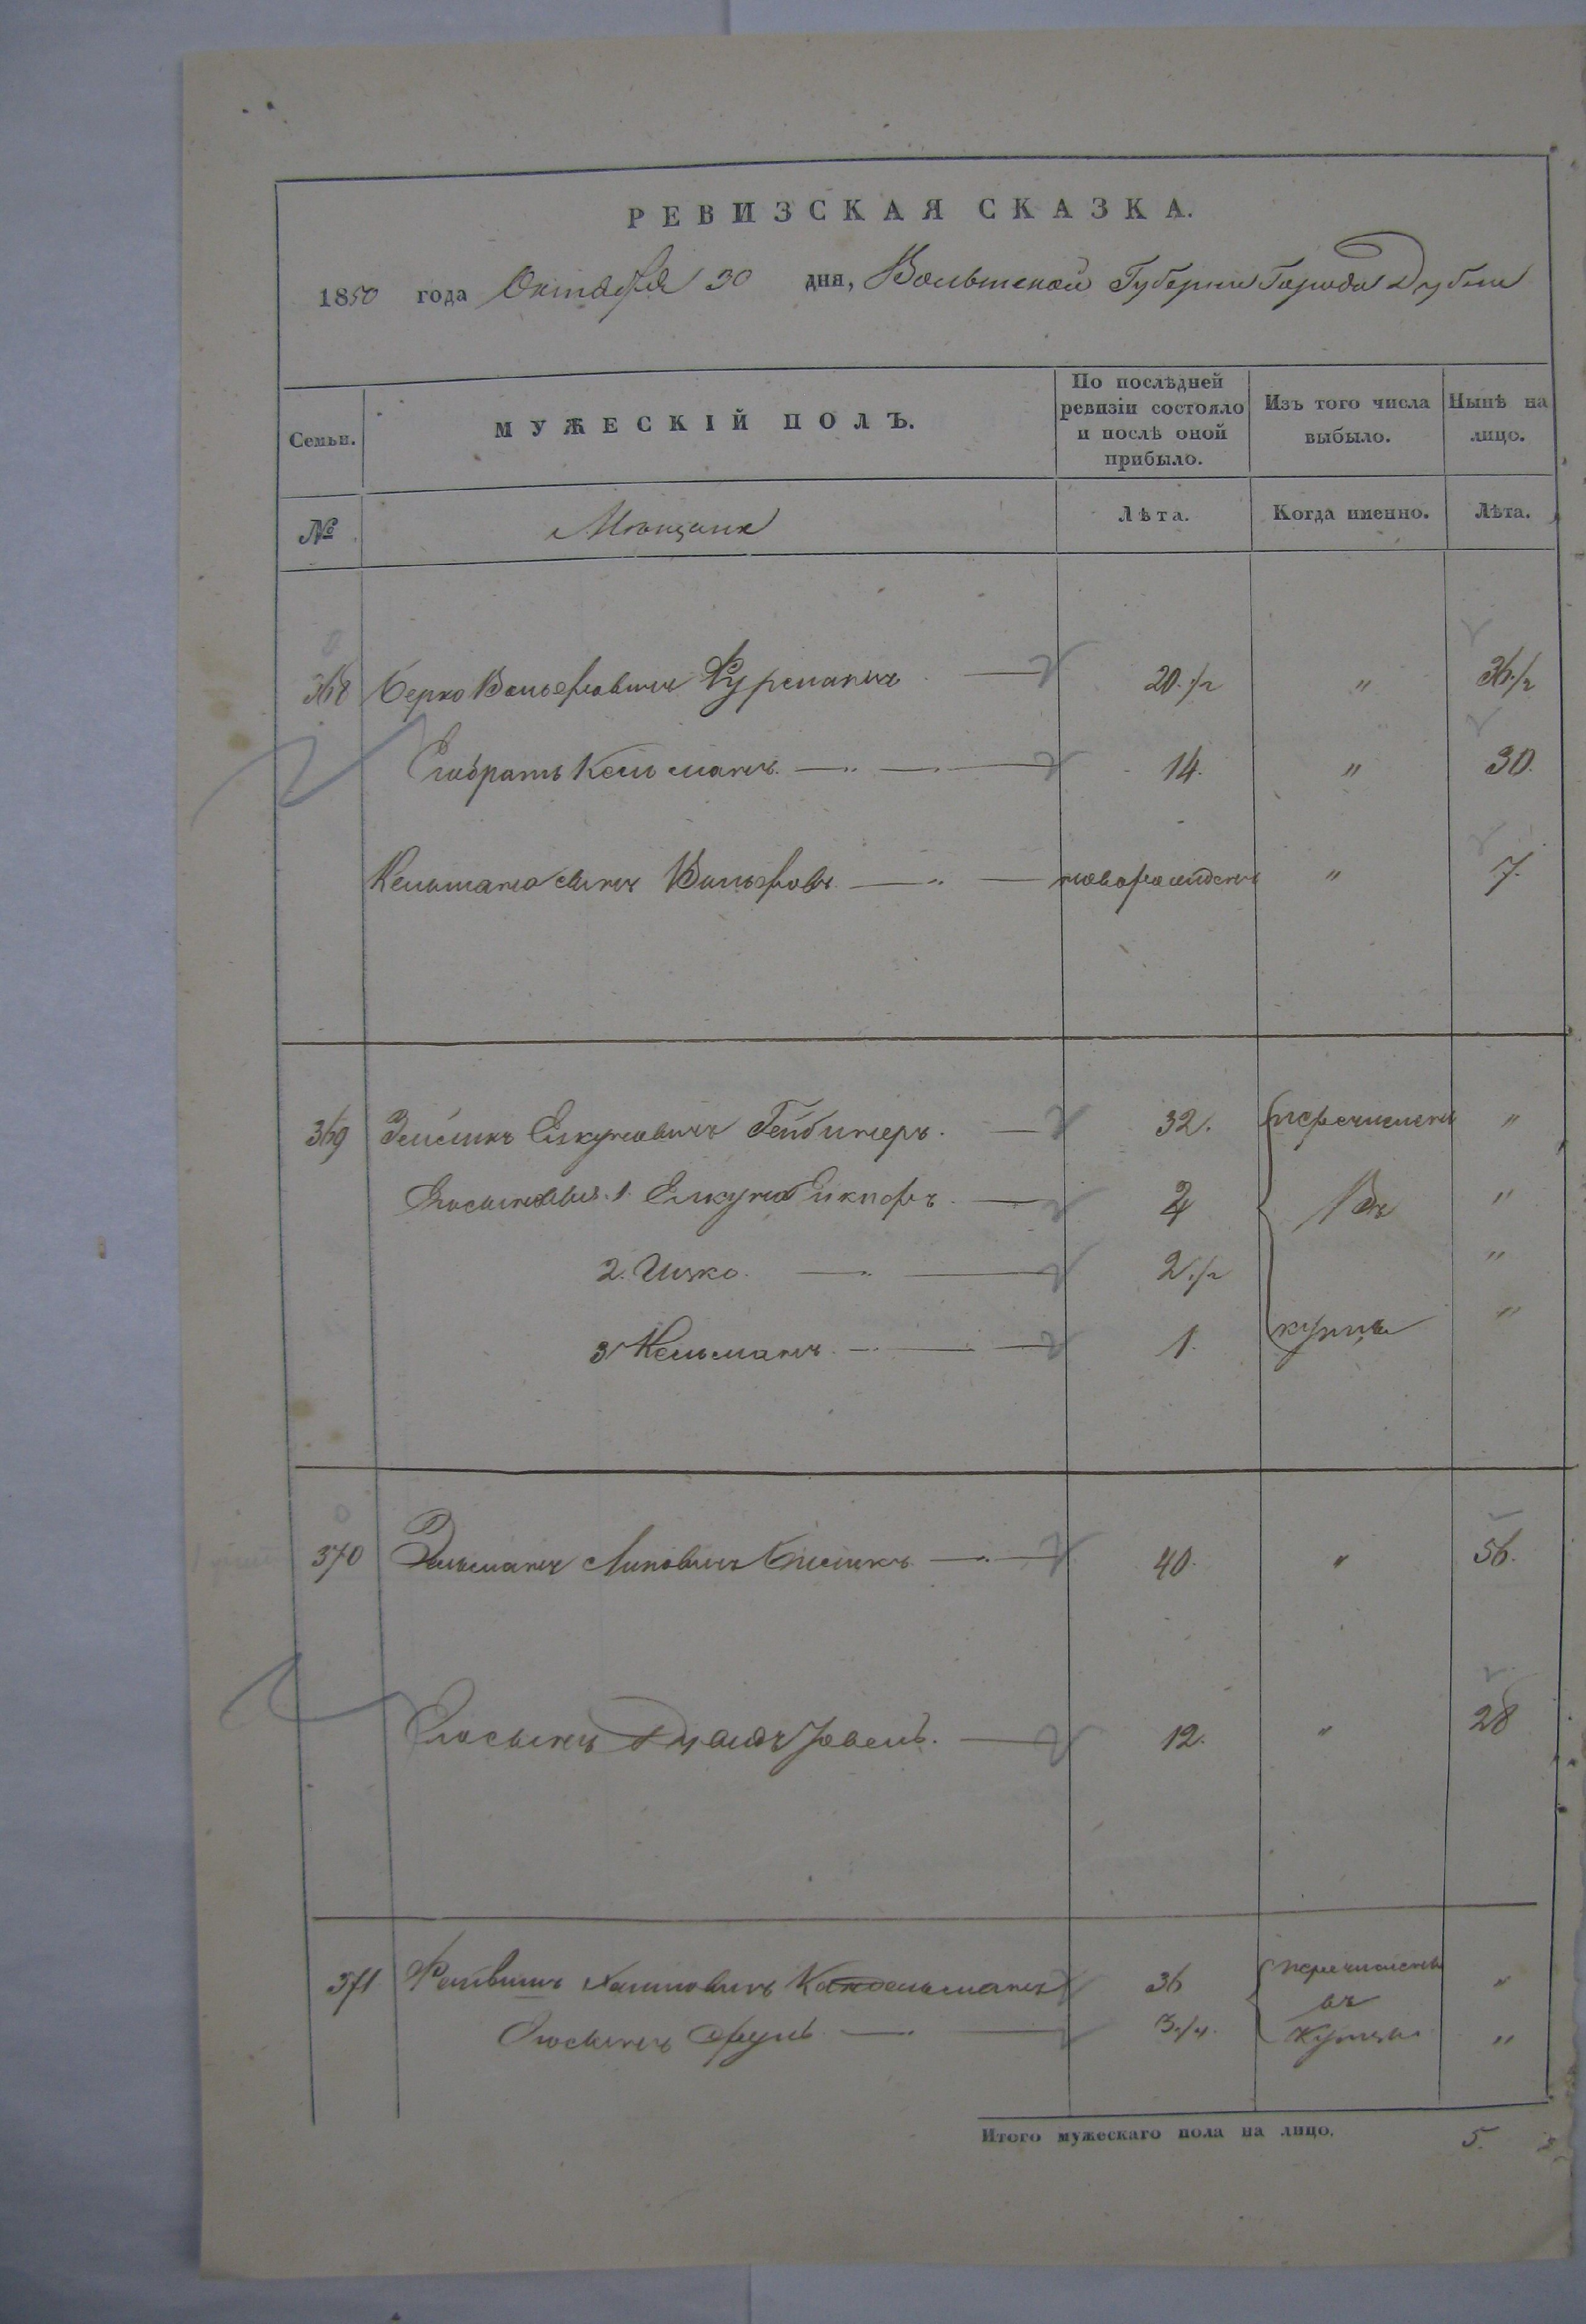 РЕВИЗСКАЯ СКАЗКА.
1850 года Октября 30 дня, Волынской Губернии Города Дубни
Семьи.
МУЖЕСКІЙ ПОЛЪ.
По послѣдней ревизіи состояло и послѣ оной прибыло.
Изъ того числа выбыло.
Нынѣ на лицо.
№
Мѣщане
Лѣта.
Когда именно.
Лѣта.
368 Берко Вольфовичъ Фурманъ 20 1/2 " 36 1/2
Его братъ Кельманъ 14 " 30.
Кельмана сынъ Вольфъ новорожденъ " 7.
369 Зейликъ Елкуновичъ 32. перечислены "
Его сыновья 1. Елкуна 4 въ "
2. Ицко. 2 1/2 "
3 Кельманъ 1. купцы "
370 Зельманъ Липовичъ 40. " 56.
Его сынъ 12. " 28
371 Файвишъ Хаимовичъ Кандельманъ 36 перечислены "
Его сынъ 3 1/4. въ купцы "
Итого мужескаго пола на лицо. 5.